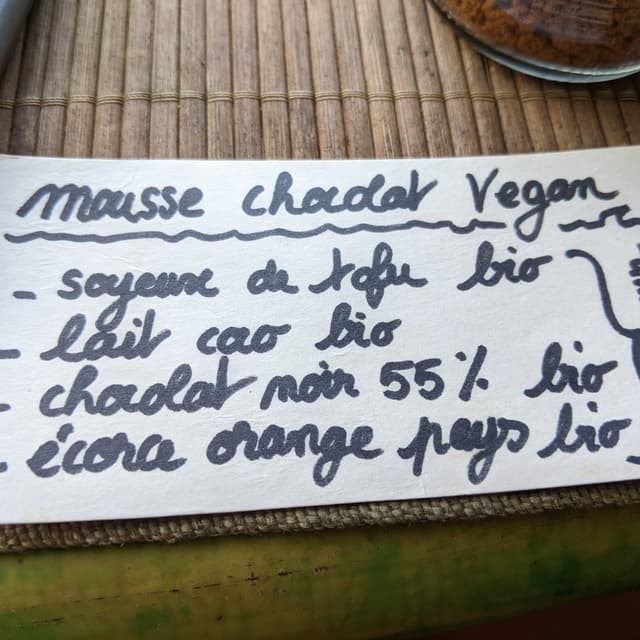 mousse chocolat Vegan
- soyeux de tofu bio
- lait cao bio
- chocolat noir 55% bio
- écorce orange pays bio